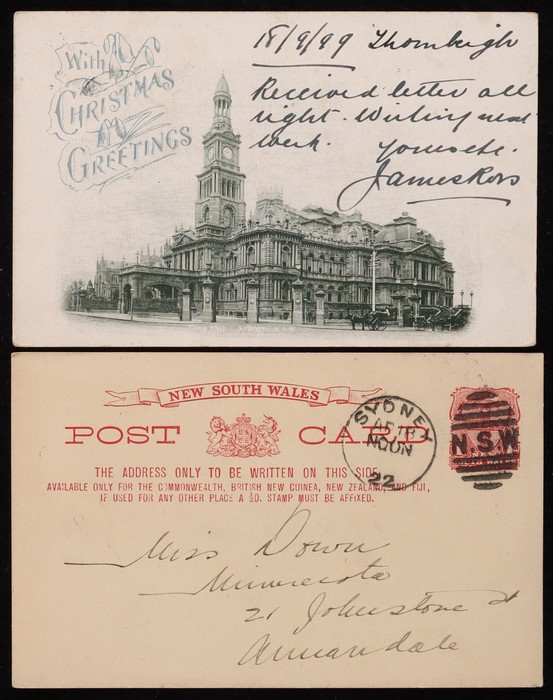 With
CHRISTMAS
GREETINGS
18/9/99 Thornleigh
Received letter all
right. Writing next
week.
Yours etc.
James Ross
NEW SOUTH WALES
POST CARD
THE ADDRESS ONLY TO BE WRITTEN ON THIS SIDE
AVAILABLE ONLY FOR THE COMMONWEALTH, BRITISH NEW GUINEA, NEW ZEALAND, AND FIJI,
IF USED FOR ANY OTHER PLACE A ½D. STAMP MUST BE AFFIXED.
SYDNEY
NOON
22
N.S.W
Miss Down
Minnecota
21 Johnstone St
Annandale